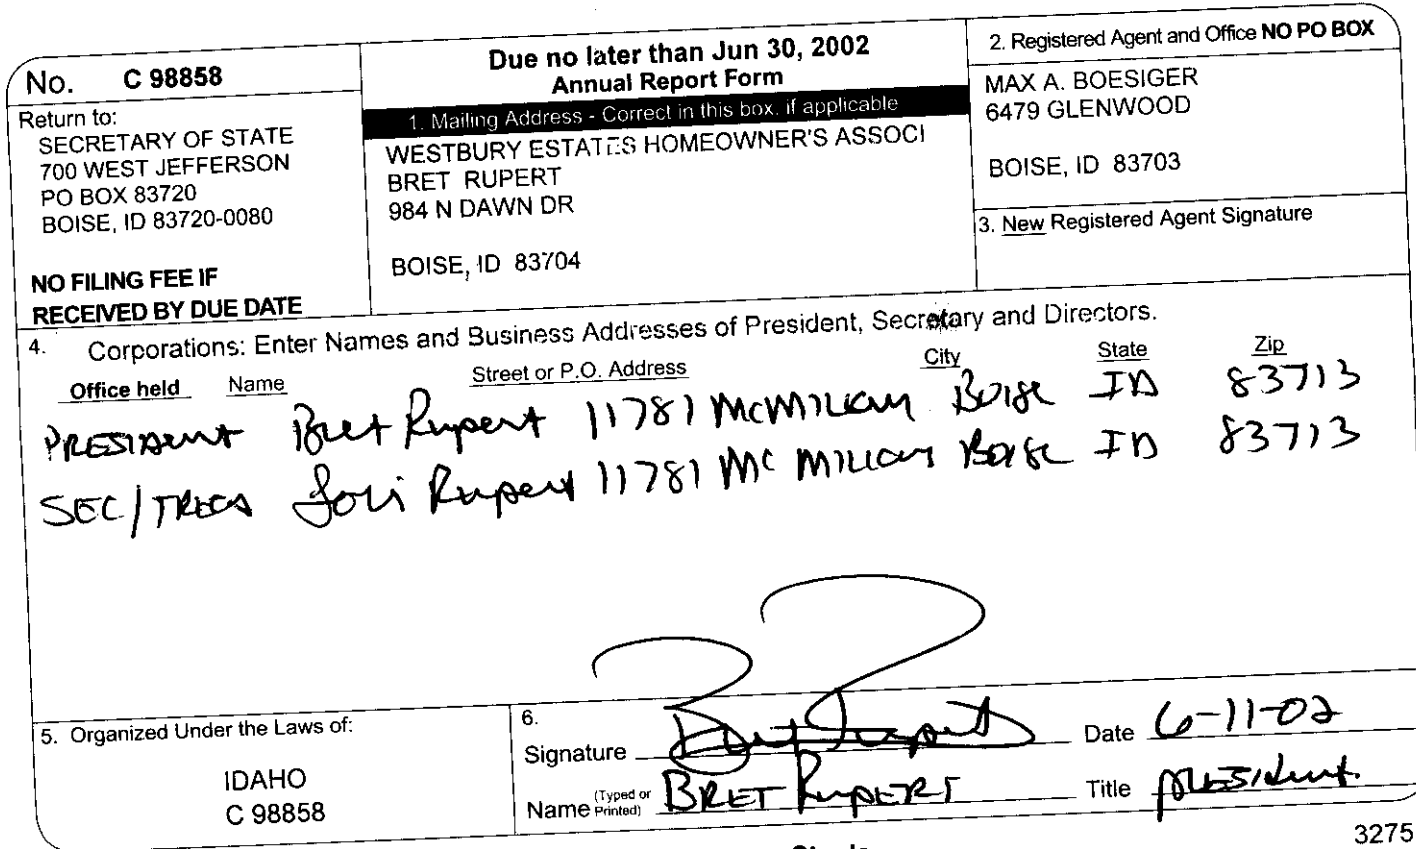 No. C 98858
Return to:
SECRETARY OF STATE
700 WEST JEFFERSON
PO BOX 83720
BOISE, ID 83720-0080
NO FILING FEE IF
RECEIVED BY DUE DATE
Due no later than Jun 30, 2002
Annual Report Form
1. Mailing Address - Correct in this box, if applicable
WESTBURY ESTATES HOMEOWNER'S ASSOCI
BRET RUPERT
984 N DAWN DR
BOISE, ID 83704
2. Registered Agent and Office NO PO BOX
MAX A. BOESIGER
6479 GLENWOOD
BOISE, ID 83703
3. New Registered Agent Signature
4. Corporations: Enter Names and Business Addresses of President, Secretary and Directors.
Office held Name Street or P.O. Address City State Zip
PRESIDENT Bret Rupert 11781 McMillan Boise ID 83713
SEC/TREAS Lori Rupert 11781 McMillan Boise ID 83713
5. Organized Under the Laws of:
IDAHO
C 98858
6.
Signature Bret Rupert Date 6-11-02
Name (Typed or Printed) BRET RUPERT Title PRESIDENT
3275